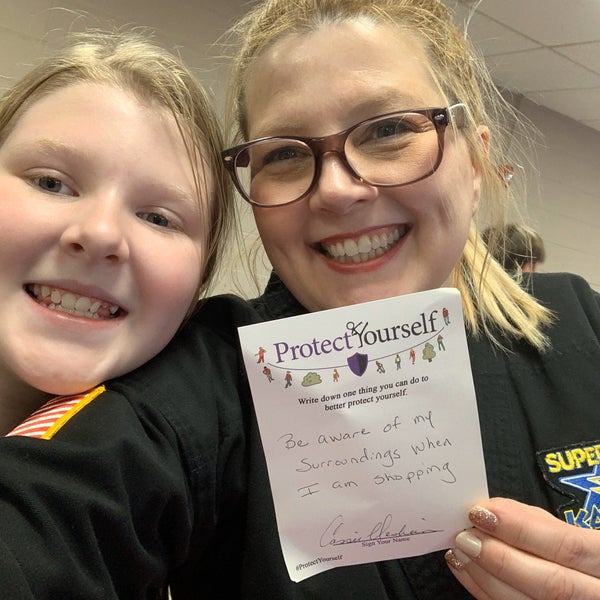 Protect Yourself
Write down one thing you can do to
better protect yourself.
Be aware of my
Surroundings when
I am shopping
Sign Your Name
#ProtectYourself
SUPER
KA